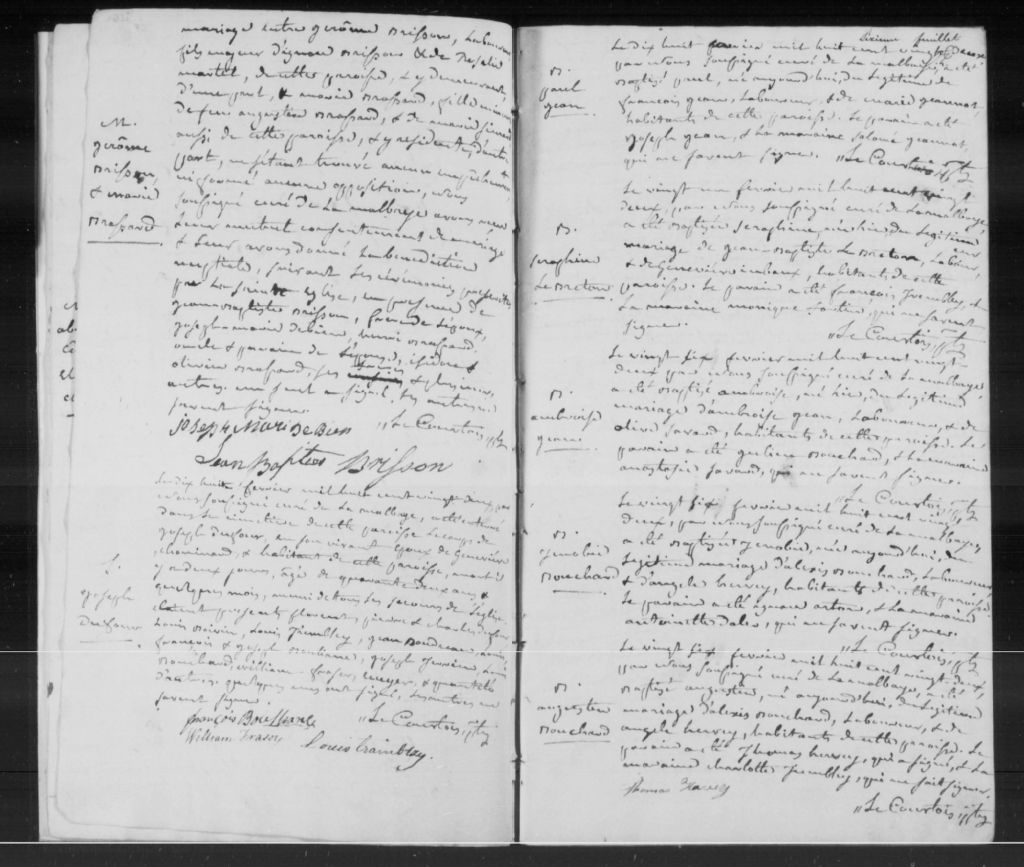 mariage entre jerôme Brisson, Laboureur
fils majeur d'ignace Brisson & de Rosalie
martel, de cette paroisse, & y demeurant,
d'une part, & marie Brassard, fille mineure
de feu augustin Brassard, & de marie
aussi de cette paroisse, & y résidente, d'autre
part, ne s'étant trouvé aucun empêchement
ni formé aucune opposition, nous
soussigné curé de La malbaye avons reçu
Leur mutuel consentement de mariage
& Leur avons donné La bénédiction
nuptiale, suivant Les cérémonies prescrites
par La sainte église, en présence de
jean-Baptiste Brisson, frère de L'époux,
joseph-marie deBien, Brassard,
oncle & parain de L'épouse, isidore &
olivier Brassard, ses & plusieurs
autres. un seul a signé, Les autres ne
savent signer
M.
jerôme
Brisson,
& marie
Brassard
joseph Mari De Bien // Le Courtois, ptre
Jean Baptise Brisson
Le dix huit fevrier mil huit cent vingt deux, par
nous soussigné curé de La malbaye, a été inhumé
dans le cimetière de cette paroisse Le corps de
joseph dufour, en son vivant époux de Geneviève
& habitant de cette paroisse, mort il
y a deux jours, agé de quarante deux ans &
quelques mois, muni de tous Les secours de L'église,
présents & charles dufour,
Louis Boivin, Louis Tremblay, jean Boudreau,
françois & joseph joseph Louis
Bouchard, william fraser, & quantité
d'autres, quelques uns ont signé, Les autres ne
savent signer.
S.
joseph
Dufour
william Fraser // Le Courtois, ptre
Louis Tramblay.
Le dix huit fevrier mil huit cent vingt deux
par nous soussigné curé de La malbaie, a été
Baptisé paul, né aujourd'hui, du Légitime, de
françois jean, Laboureur, & de marie jeannot,
habitants de cette paroisse. Le parain a été
joseph jean, & La maraine salomé jeannot,
qui ne savent signer. // Le Courtois, ptre
B.
paul
jean
Le vingt un fevrier mil huit cent vingt
deux, par nous soussigné curé de La malbaye,
a été Baptisée seraphine, née hier, du Légitime
mariage de jean-Baptiste Le Breton, Laboureur,
& de Geneviève, habitants de cette
paroisse. Le parain a été françois Tremblay, &
La maraine monique fortin, qui ne savent
signer.
// Le Courtois, ptre
B.
seraphine
Le Breton
Le vingt six fevrier mil huit cent vingt-
deux par nous soussigné curé de La malbaye
a été Baptisé ambroise, né hier, du Légitime
mariage d'ambroise jean, Laboureur, & de
olive savard, habitants de cette paroisse. Le
parain a été julien Bouchard, & La maraine
anastasie savard, qui ne savent signer.
// Le Courtois, ptre
B.
ambroise
jean
Le vingt six fevrier mil huit cent vingt
deux, par nous soussigné curé de La malbaye
a été Baptisée zenobie, née aujourd'hui, du
Légitime mariage d'alexis Bouchard, Laboureur,
& d'angele hervey, habitants de cette paroisse.
Le parain a été ignace, & La maraine
antoinette, qui ne savent signer.
// Le Courtois, ptre
B.
zenobie
Bouchard
Le vingt six fevrier mil huit cent vingt deux,
par nous soussigné curé de La malbaye, a été
Baptisé augustin, né aujourd'hui, du Légitime
mariage d'alexis Bouchard, Laboureur, & de
angele hervey, habitants de cette paroisse. Le
parain a été Thomas hervey, qui a signé, & La
maraine charlotte Tremblay, qui ne sait signer.
B.
augustin
Bouchard
Thomas
// Le Courtois, ptre